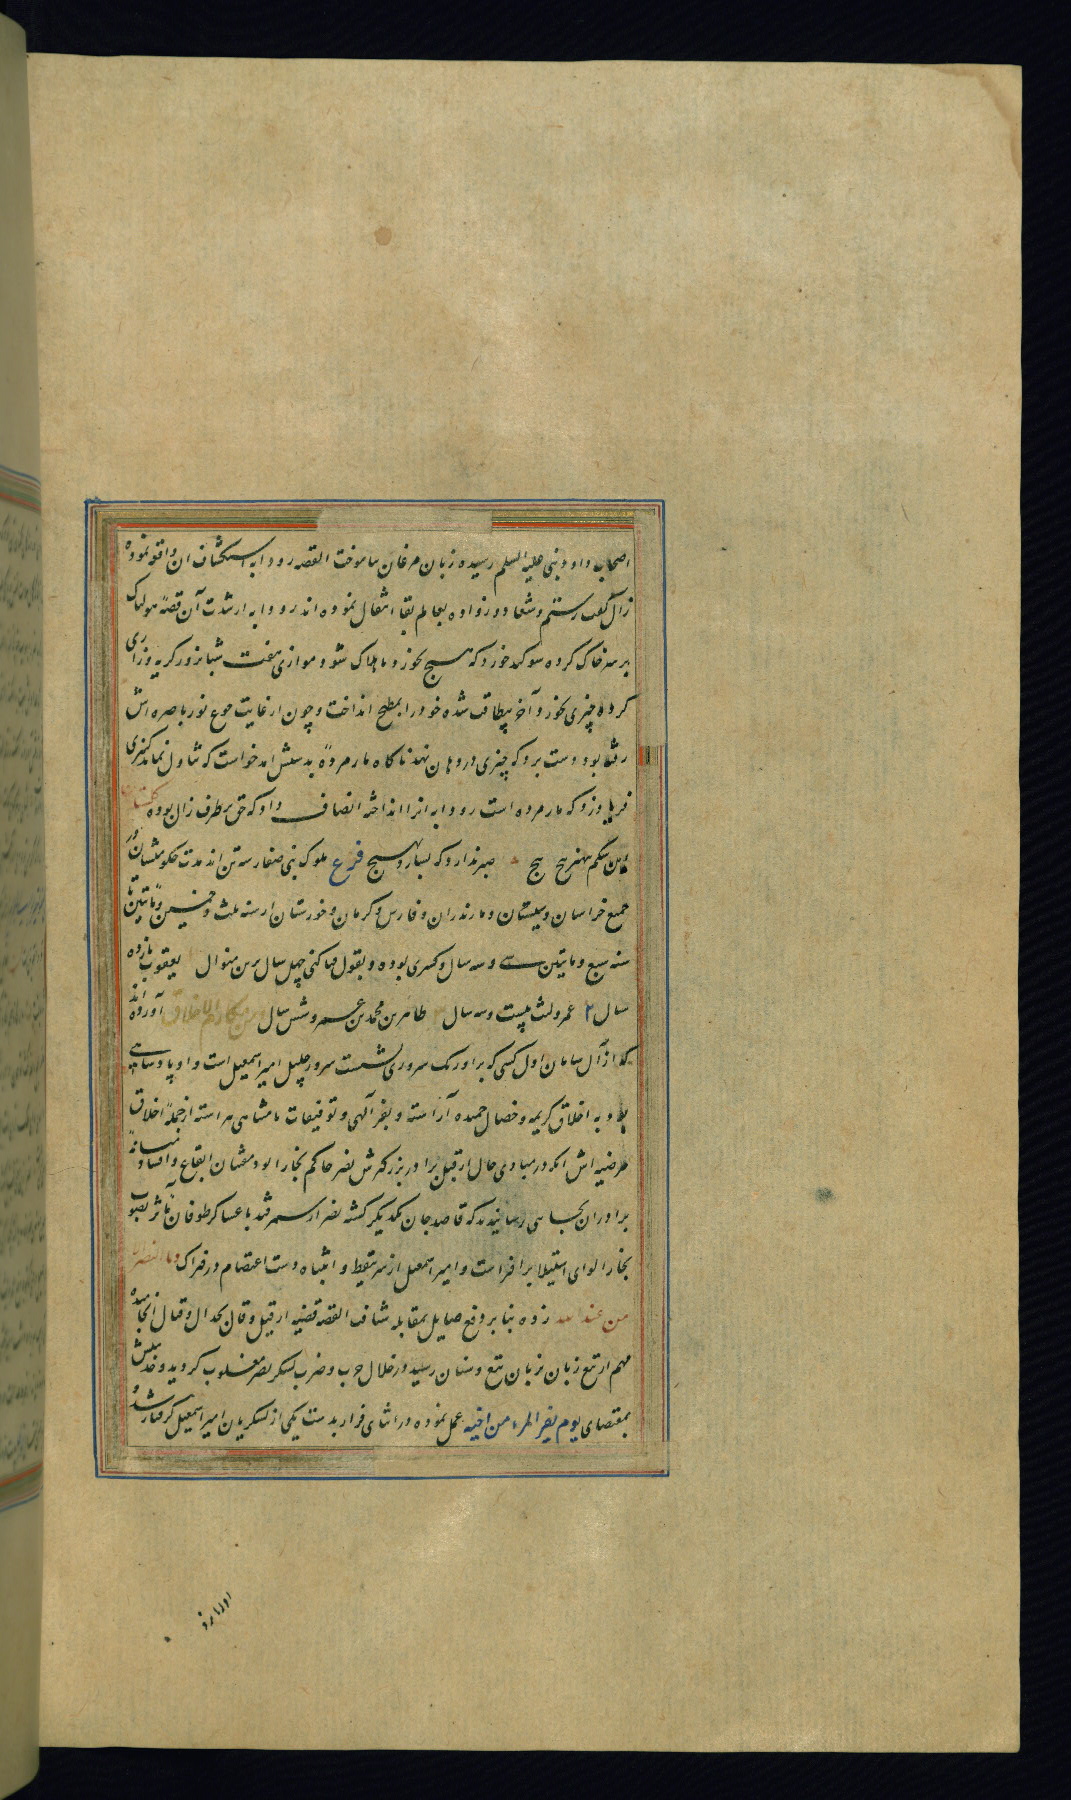 اصحاب داود نبی علیه السلم رسیده زبان مرغان بیاموخت القصه رودابه استکشاف ان واقعه نموده
زال گفت رستم و شغاد و زواره بعالم بقا انتقال نموده اند رودابه از شدت آن قصهٔ هولناک
بر سر خاک کرده سوکند خورد که هیچ نخورد تا هلاک شود موازی هفت شبانروز کریه و زاری
کرده چیزی نخورد و آخر بیطاقت شده خود را بمطبخ انداخت و چون از غایت جوع نور باصره اش
رفته بود دست برد که چیزی در دهان نهد ناکاه مار مرده بدستش امد خواست که تناول نماید کنیزی
فریاد زد که مار مرده است رودابه انرا انداخته انصاف داد که حق بر طرف زال بوده
این شکم بی هنر پیچ پیچ صبر ندارد که بسازد بهیچ فرع ملوک بنی صفار سه تن اند مدت حکومتشان در
جمیع خراسان و سیستان و مازندران و فارس و کرمان و خوزستان از سنه ثلث و خمسین و مأتین تا
سنه سبع و مایتین سی و سه سال و کسری بوده و بقول چهل سال برین منوال یعقوب یازده
سال ۲ عمرو لیث بیست و سه سال ۳ طاهر بن محمد بن عمرو شش سال من مکارم الاخلاق آورده اند
که از آل سامان اول کسی که بر اورنک سروری نشست سرور جلیل امیر اسمعیل است و او پادشاهی
بود به اخلاق کریمه و خصال حمیده آراسته و بفر آلهی و توفیقات نامتناهی پیراسته از جملهٔ اخلاق
مرضیه اش انکه در مبادی حال از قبل برادر بزرکترش نصر حاکم بخارا بود مفتنان ایقاع و افساد میانهٔ
برادران بجایی رسانیدند که قاصد جان یکدیکر کشته نصر از سمرقند با عساکر طوفان تأثر بصوب
بخارا لوای استیلا برافراشت و امیر اسمعیل از سر تیقظ و انتباه دست اعتصام در فتراک وما النصر الا
من عند الله زده بنا بر دفع صایل بمقابله شتافت القصه قضیه از قیل و قال بجدال و قتال انجامیده
مهم از تیغ زبان بزبان تیغ و سنان رسید در خلال حرب و ضرب لشکر نصر مغلوب کردید و خدمش
بمقتضای یوم یفر المرء من اخیه عمل نموده در اثنای فرار بدست یکی از لشکریان امیر اسمعیل کرفتار شد و